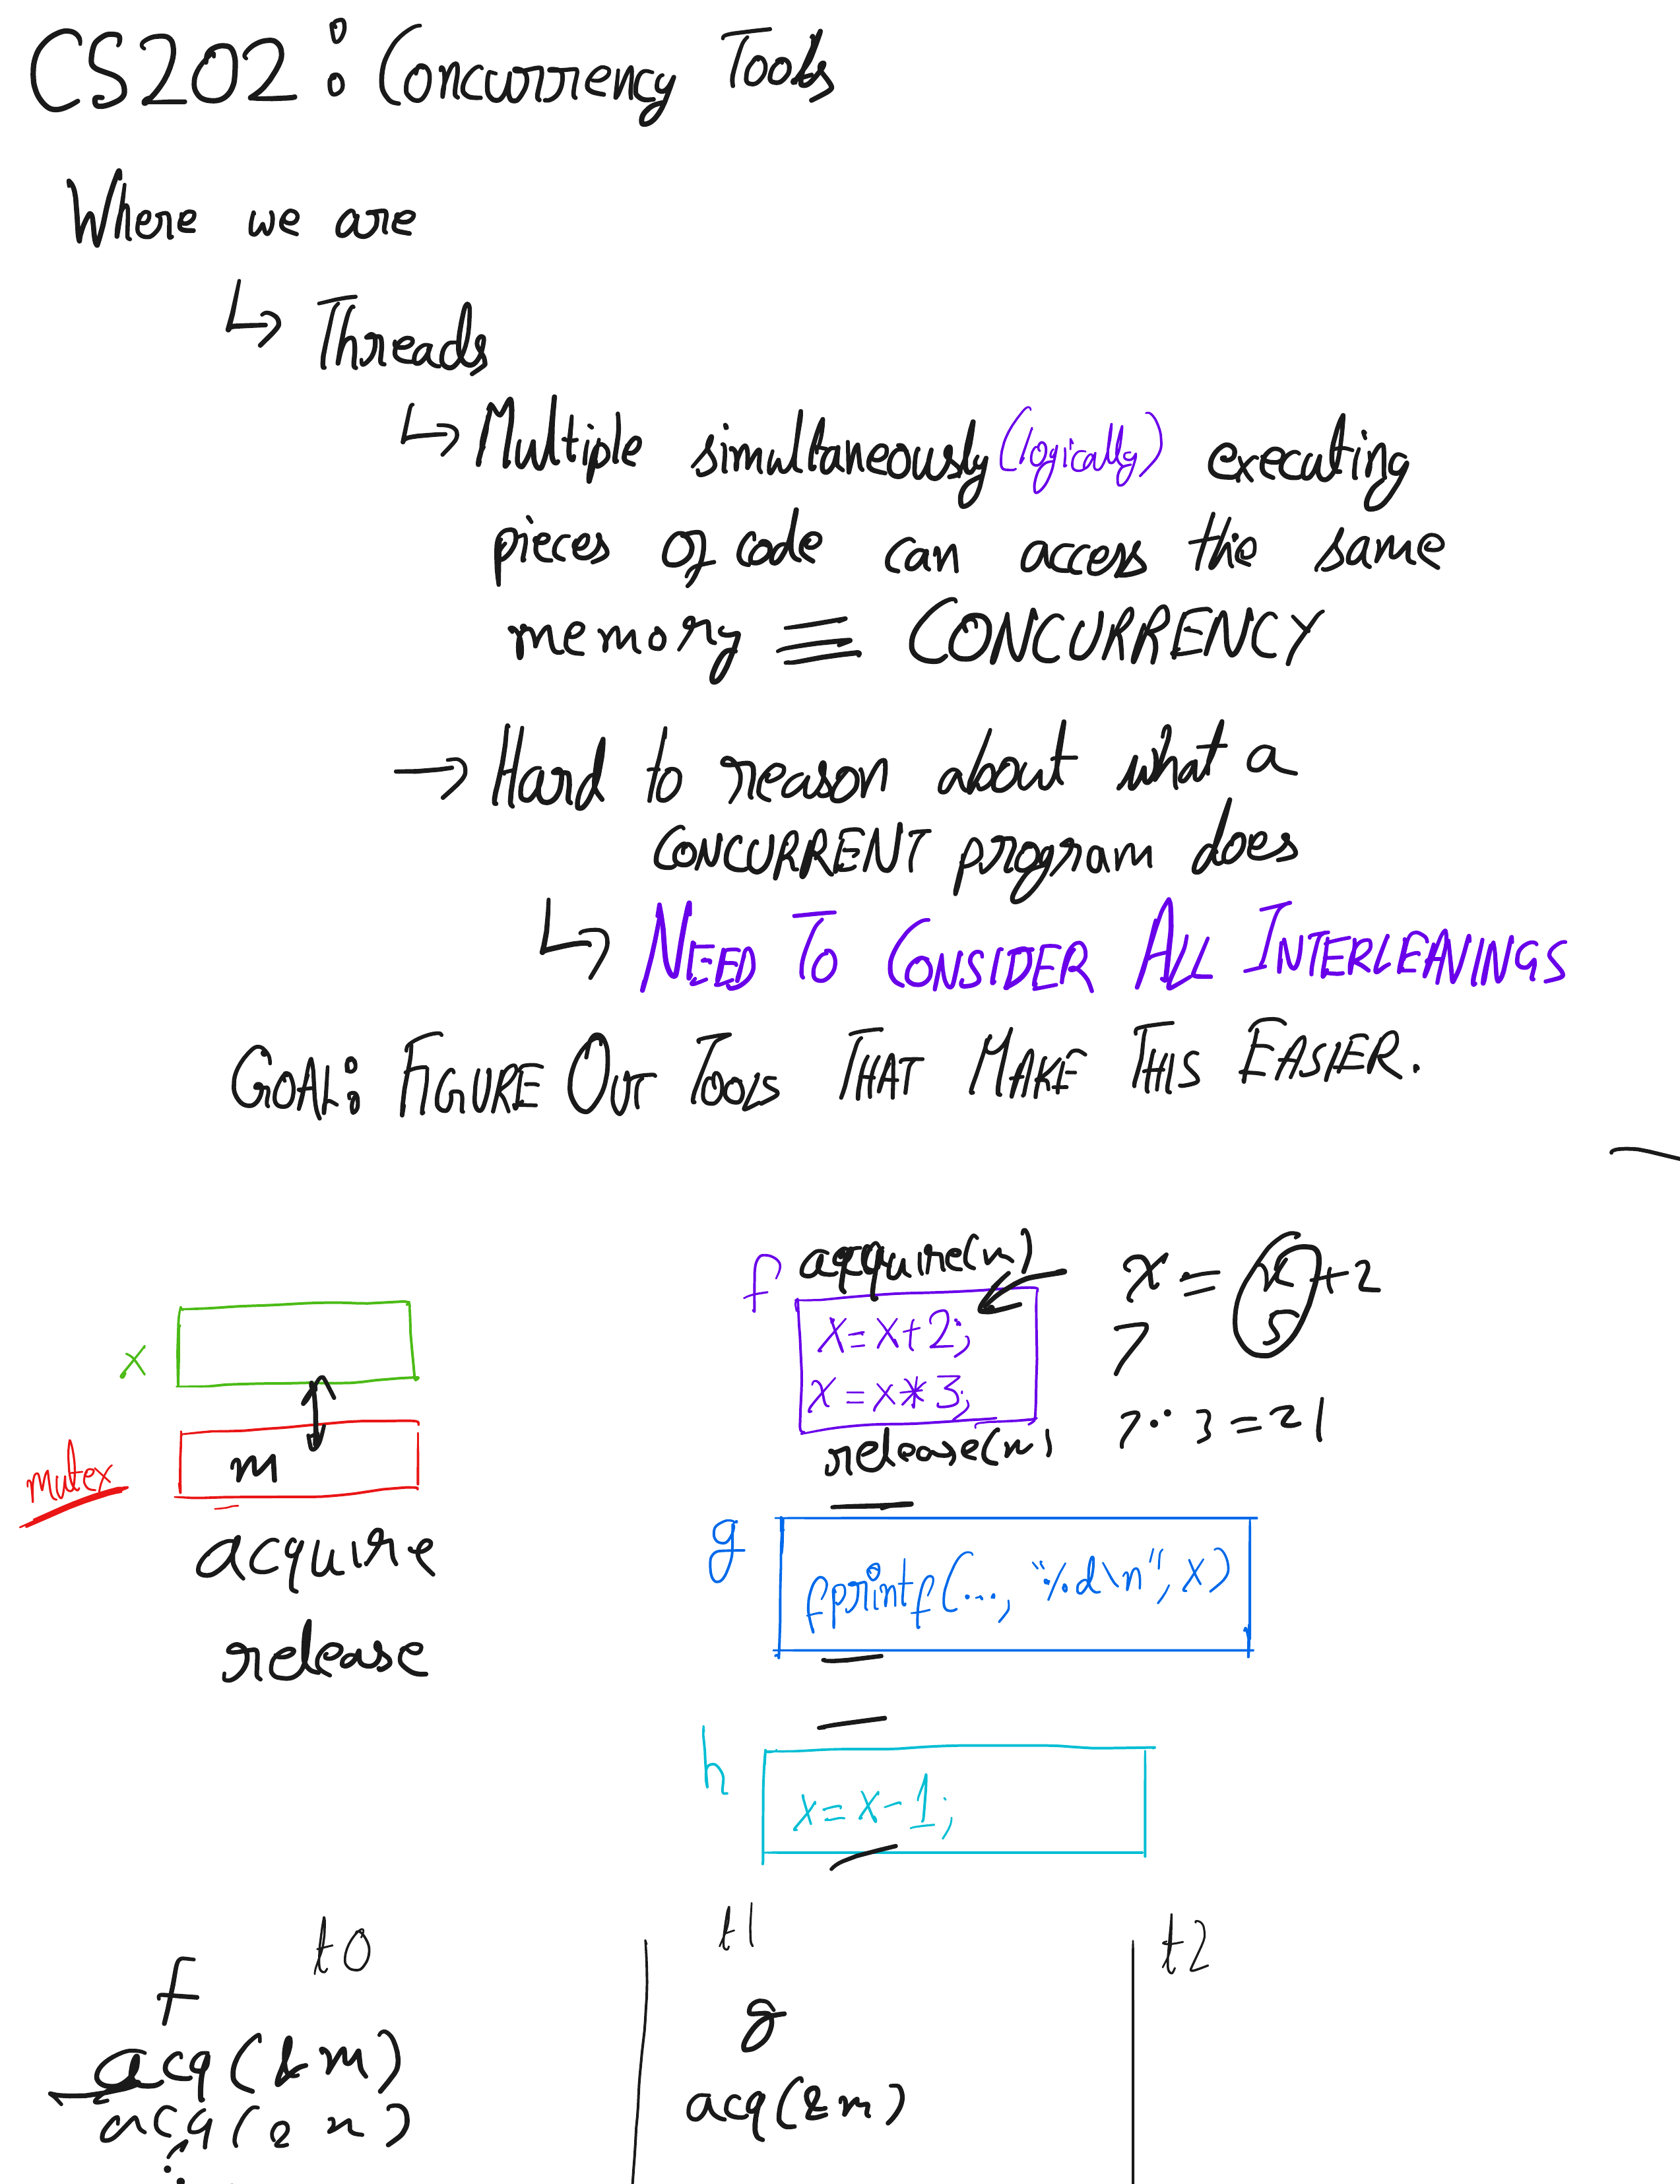 CS202: Concurrency Tools
Where we are
↳ Threads
↳ Multiple simultaneously (logically) executing
pieces of code can access the same
memory ≡ CONCURRENCY
→ Hard to reason about what a
CONCURRENT program does
↳ NEED TO CONSIDER ALL INTERLEAVINGS
GOAL: FIGURE OUT TOOLS THAT MAKE THIS EASIER.
x
m
mutex
acquire
release
f
acquire(m)
x=x+2;
x=x*3;
release(m)
x=x+2
5
7
7·3=21
g
fprintf(..., "%d\n", x)
h
x=x-1;
t0
t1
t2
f
acq(&m)
acq(&m)
g
acq(&m)